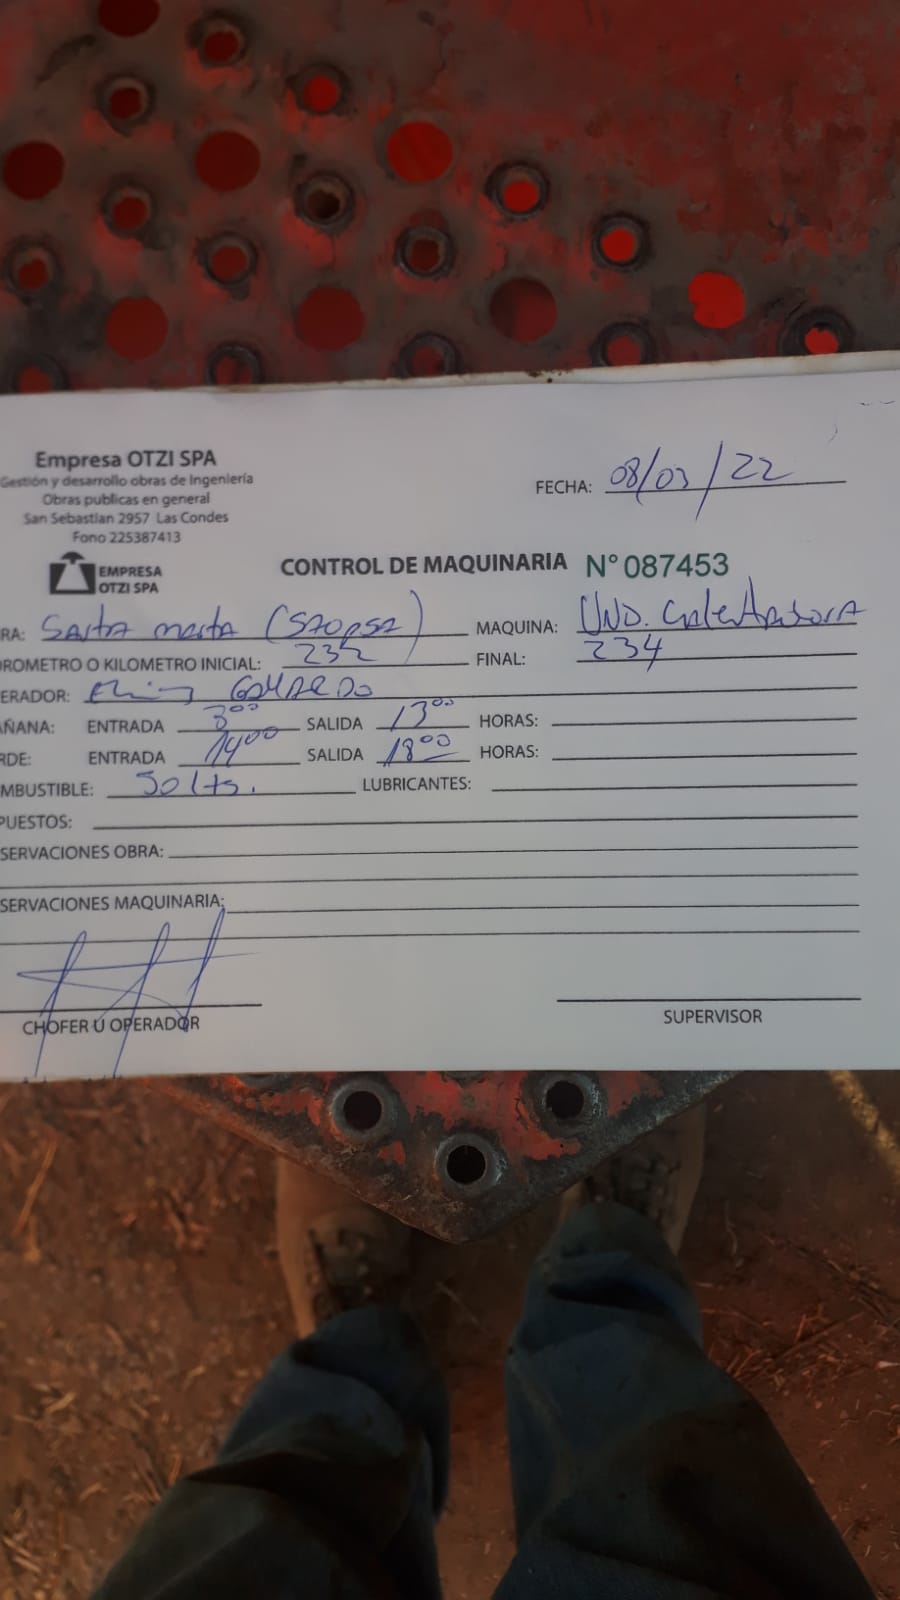 Empresa OTZI SPA
Gestión y desarrollo obras de Ingeniería
Obras publicas en general
San Sebastian 2957 Las Condes
Fono 225387413
FECHA: 08/03/22
EMPRESA
OTZI SPA
CONTROL DE MAQUINARIA N° 087453
RA: Santa marta MAQUINA: UND. Calentadora
OROMETRO O KILOMETRO INICIAL: 232 FINAL: 234
ERADOR: GALLARDO
AÑANA: ENTRADA 8⁰⁰ SALIDA 13⁰⁰ HORAS:
RDE: ENTRADA 14⁰⁰ SALIDA 18⁰⁰ HORAS:
MBUSTIBLE: 50 lts. LUBRICANTES:
PUESTOS:
SERVACIONES OBRA:
SERVACIONES MAQUINARIA:
CHOFER U OPERADOR SUPERVISOR